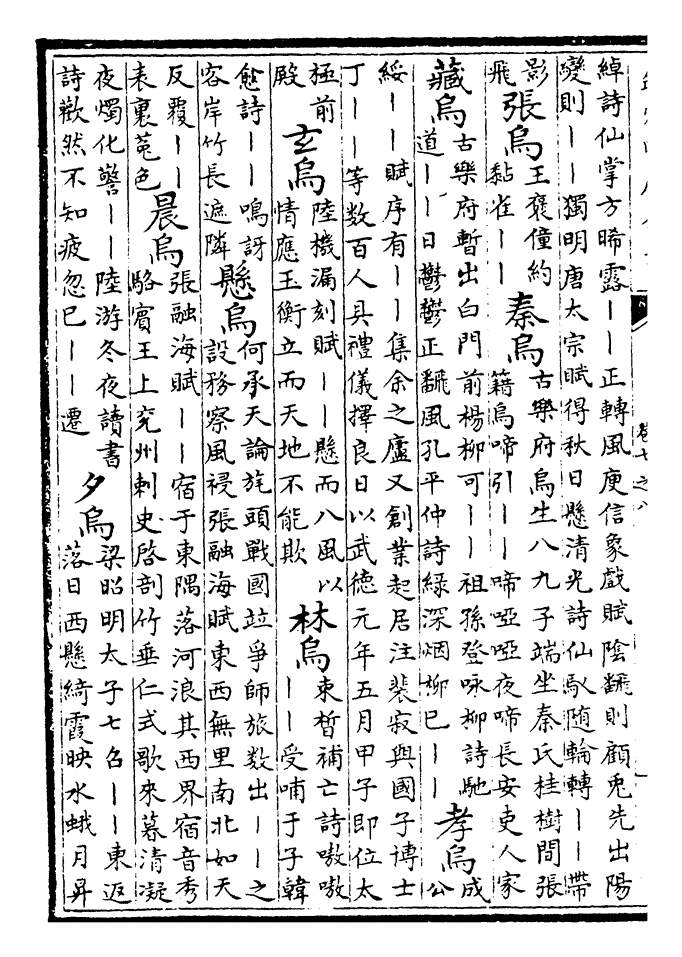 綽詩仙掌方晞露｜｜正轉風庾信象戲賦陰翻則顧兎先出陽
變則｜｜獨明唐太宗賦得秋日懸清光詩仙馭随輪轉｜｜帶
影
飛
張烏
王褒僮約
黏雀｜｜
秦烏
古樂府烏生八九子端坐秦氏桂樹間張
籍烏啼引｜｜啼啞啞夜啼長安吏人家
藏烏
古樂府暫出白門前楊柳可｜｜祖孫登咏柳詩馳
道｜｜日鬱鬱正翻風孔平仲詩綠深烟柳已｜｜
孝烏
成
公
綏｜｜賦序有｜｜集余之廬又創業起居注裴寂與國子博士
丁｜｜等数百人具禮儀擇良日以武德元年五月甲子即位太
極前
殿
玄烏
陸機漏刻賦｜｜懸而八風以
情應玉衡立而天地不能欺
林烏
束晳補亡詩嗷嗷
｜｜受哺于子韓
愈詩｜｜鳴訝
容岸竹長遮隣
懸烏
何承天論旄頭戰國竝爭師旅数出｜｜之
設務察風祲張融海賦東西無里南北如天
反覆｜｜
表裏菟色
晨烏
張融海賦｜｜宿于東隅落河浪其西界宿音秀
駱賓王上兖州刺史啓剖竹垂仁式歌來暮清凝
夜燭化警｜｜陸游冬夜讀書
詩歡然不知疲忽已｜｜遷
夕烏
梁昭明太子七召｜｜東返
落日西懸綺霞映水蛾月昇